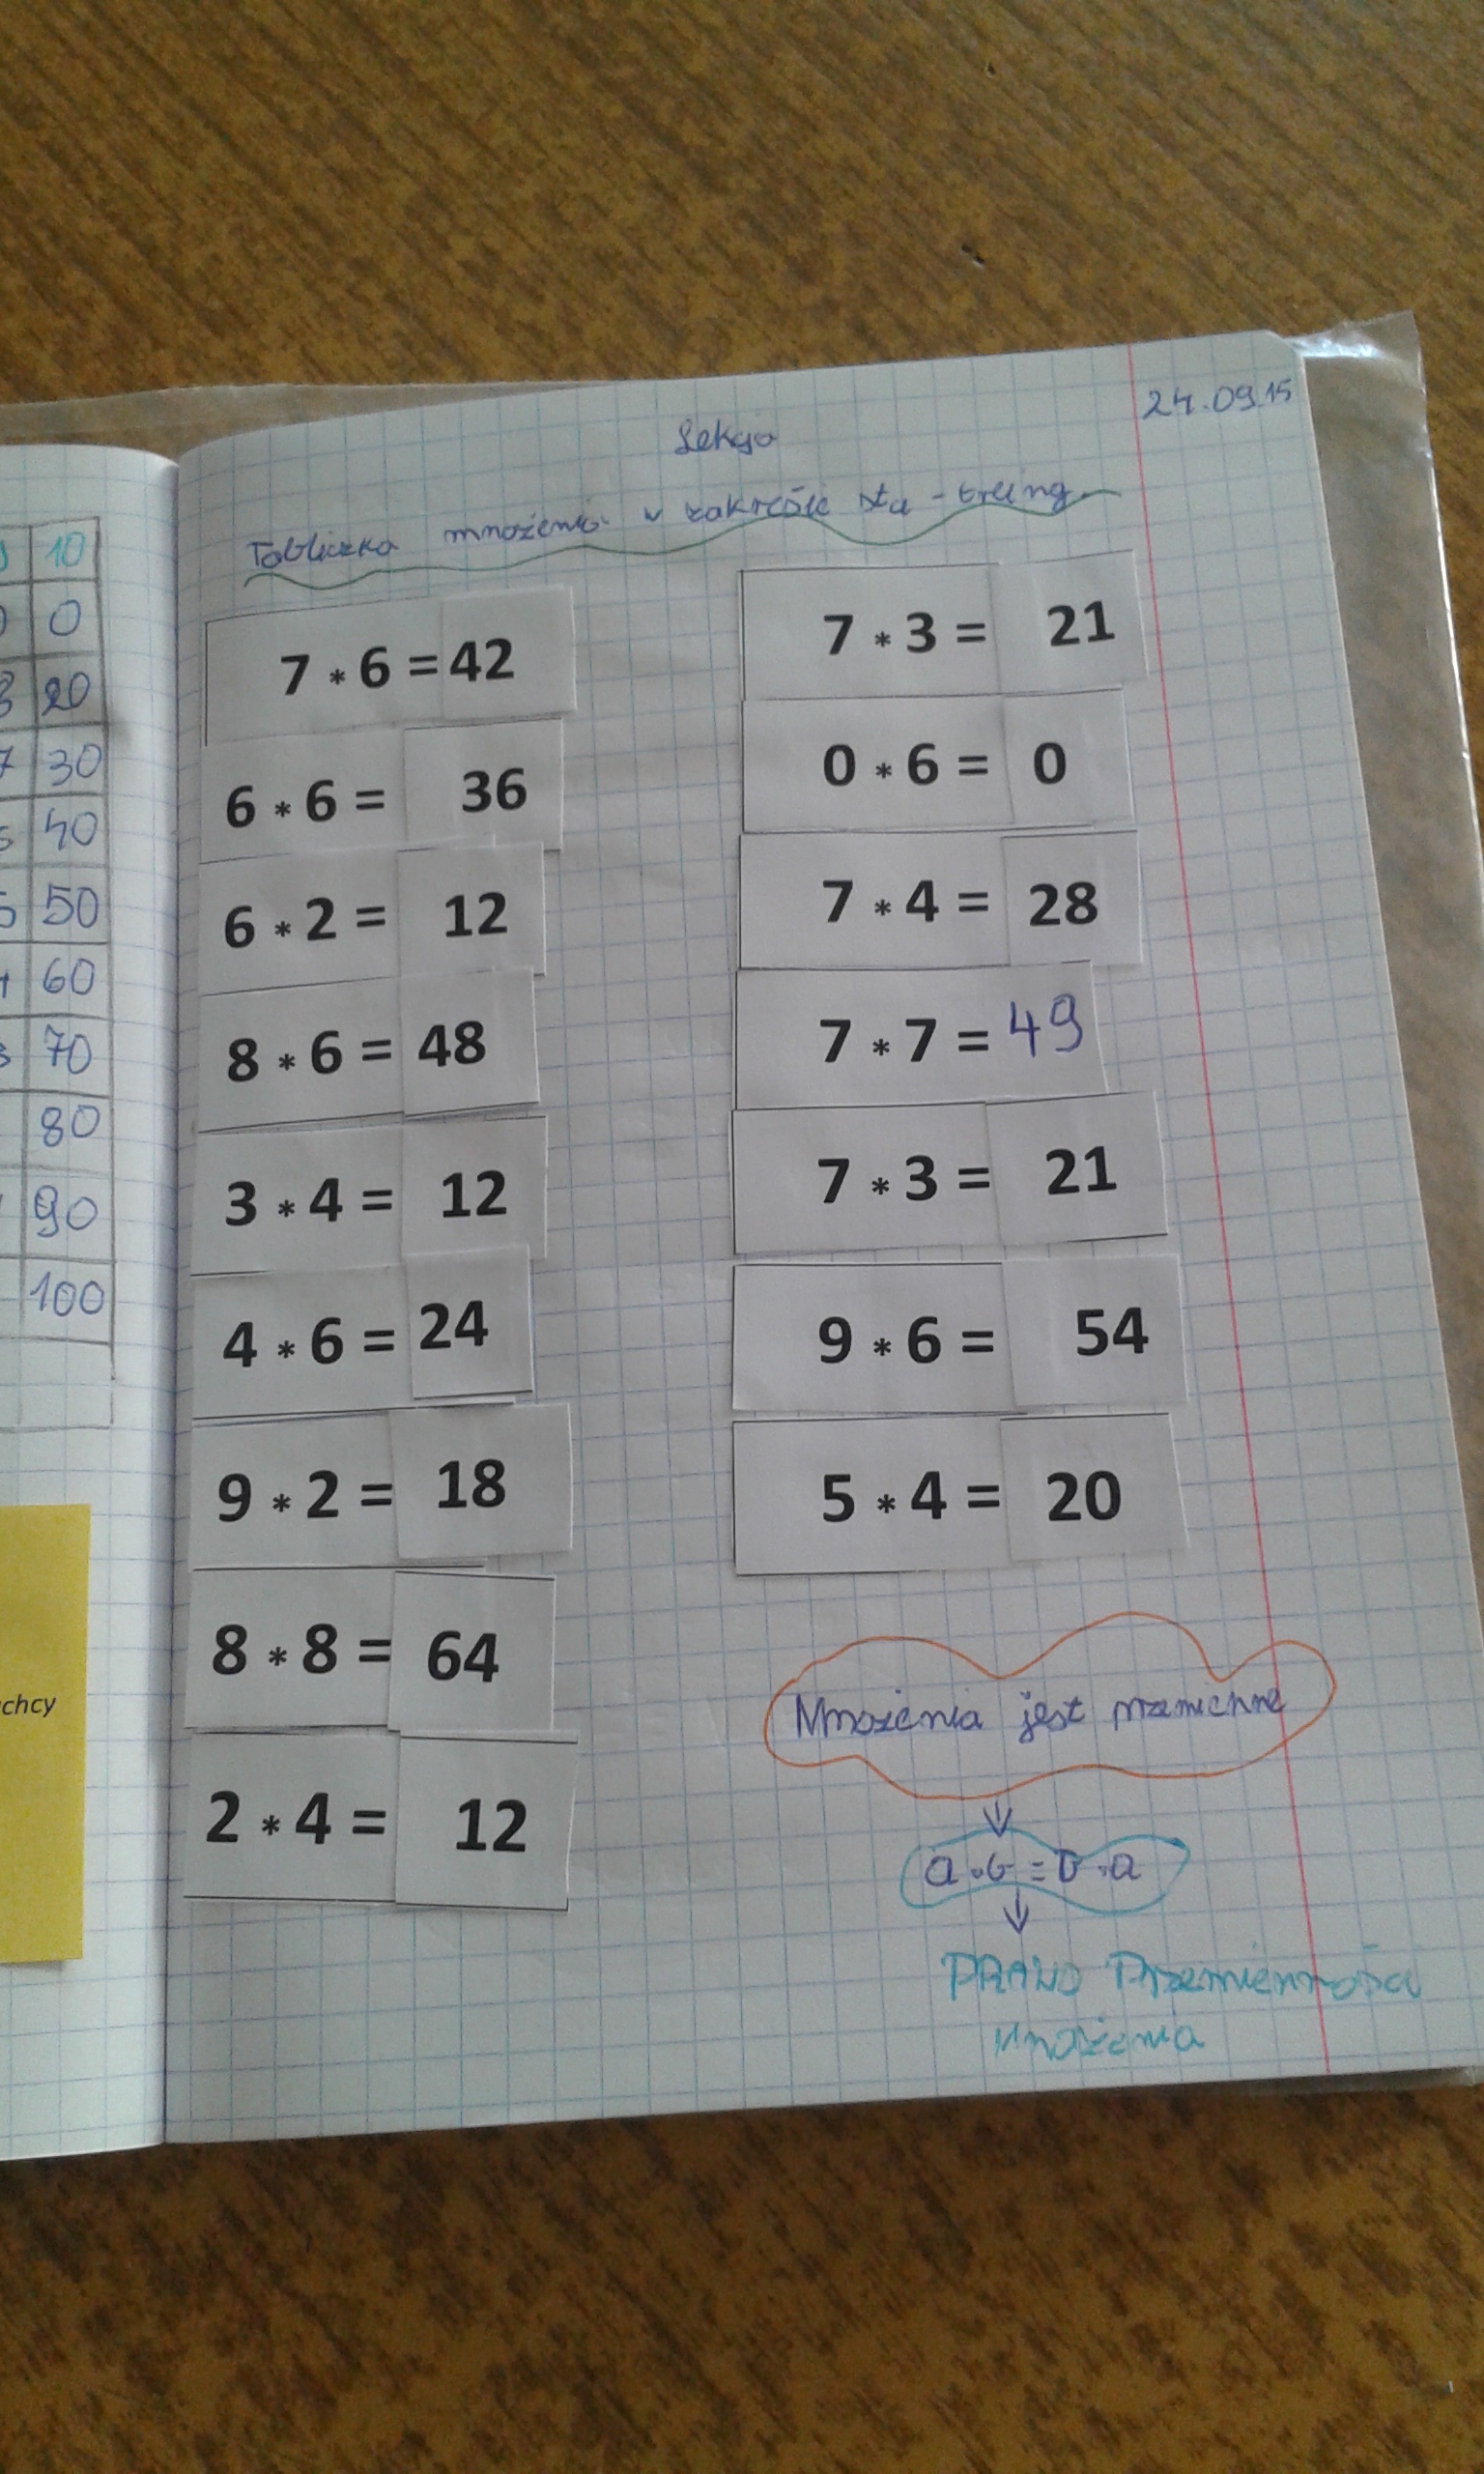 24.09.15
Lekcja
Tabliczka mnożenia w zakresie stu - trening
7 * 6 = 42
6 * 6 = 36
6 * 2 = 12
8 * 6 = 48
3 * 4 = 12
4 * 6 = 24
9 * 2 = 18
8 * 8 = 64
2 * 4 = 12
7 * 3 = 21
0 * 6 = 0
7 * 4 = 28
7 * 7 = 49
7 * 3 = 21
9 * 6 = 54
5 * 4 = 20
Mnożenia jest przemienne
a·b=b·a
PRAWO Przemienności
Mnożenia
10
0
20
30
40
50
60
70
80
90
100
chcy